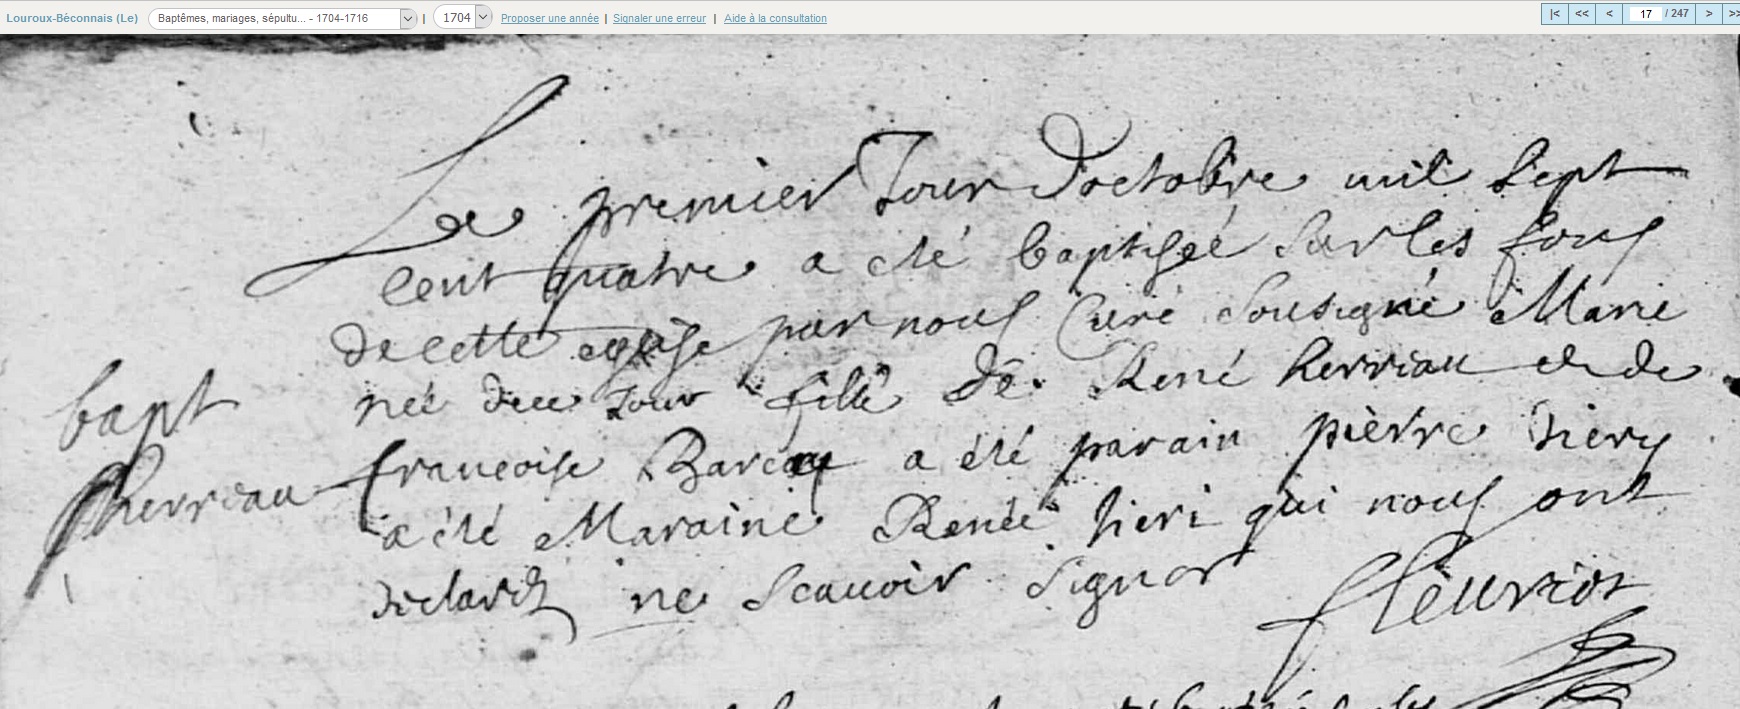 Louroux-Béconnais (Le) Baptêmes, mariages, sépultu... - 1704-1716 | 1704 Proposer une année | Signaler une erreur | Aide à la consultation |< << < 17 / 247 > >>
Le premier Jour d'octobre mil sept
cent quatre a eté baptisée sur les fons
de cette eglise par nous Curé sousigné Marie
née du Jour fille de René herreau et de
francoise a été parain pierre hiery
a été Maraine Renée hieri qui nous ont
declaréz ne scauoir signer
fleuriot
bapt
herreau